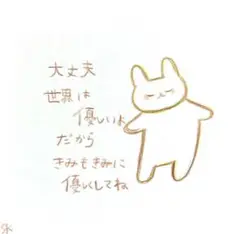 大丈夫
世界は
優しいよ
だから
きみもきみに
優しくしてね